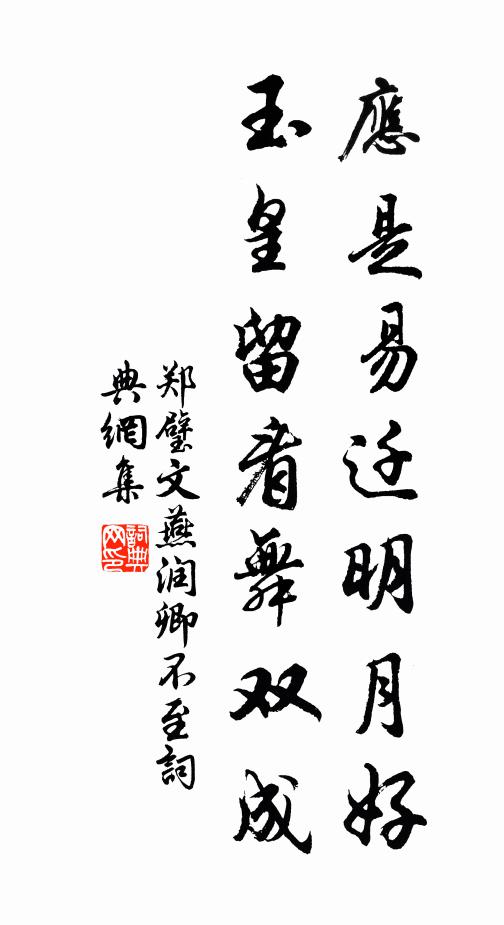 應是易迁明月好
玉皇留看舞双成
郑璧文燕润卿不至詞
典網集
詞典
网印